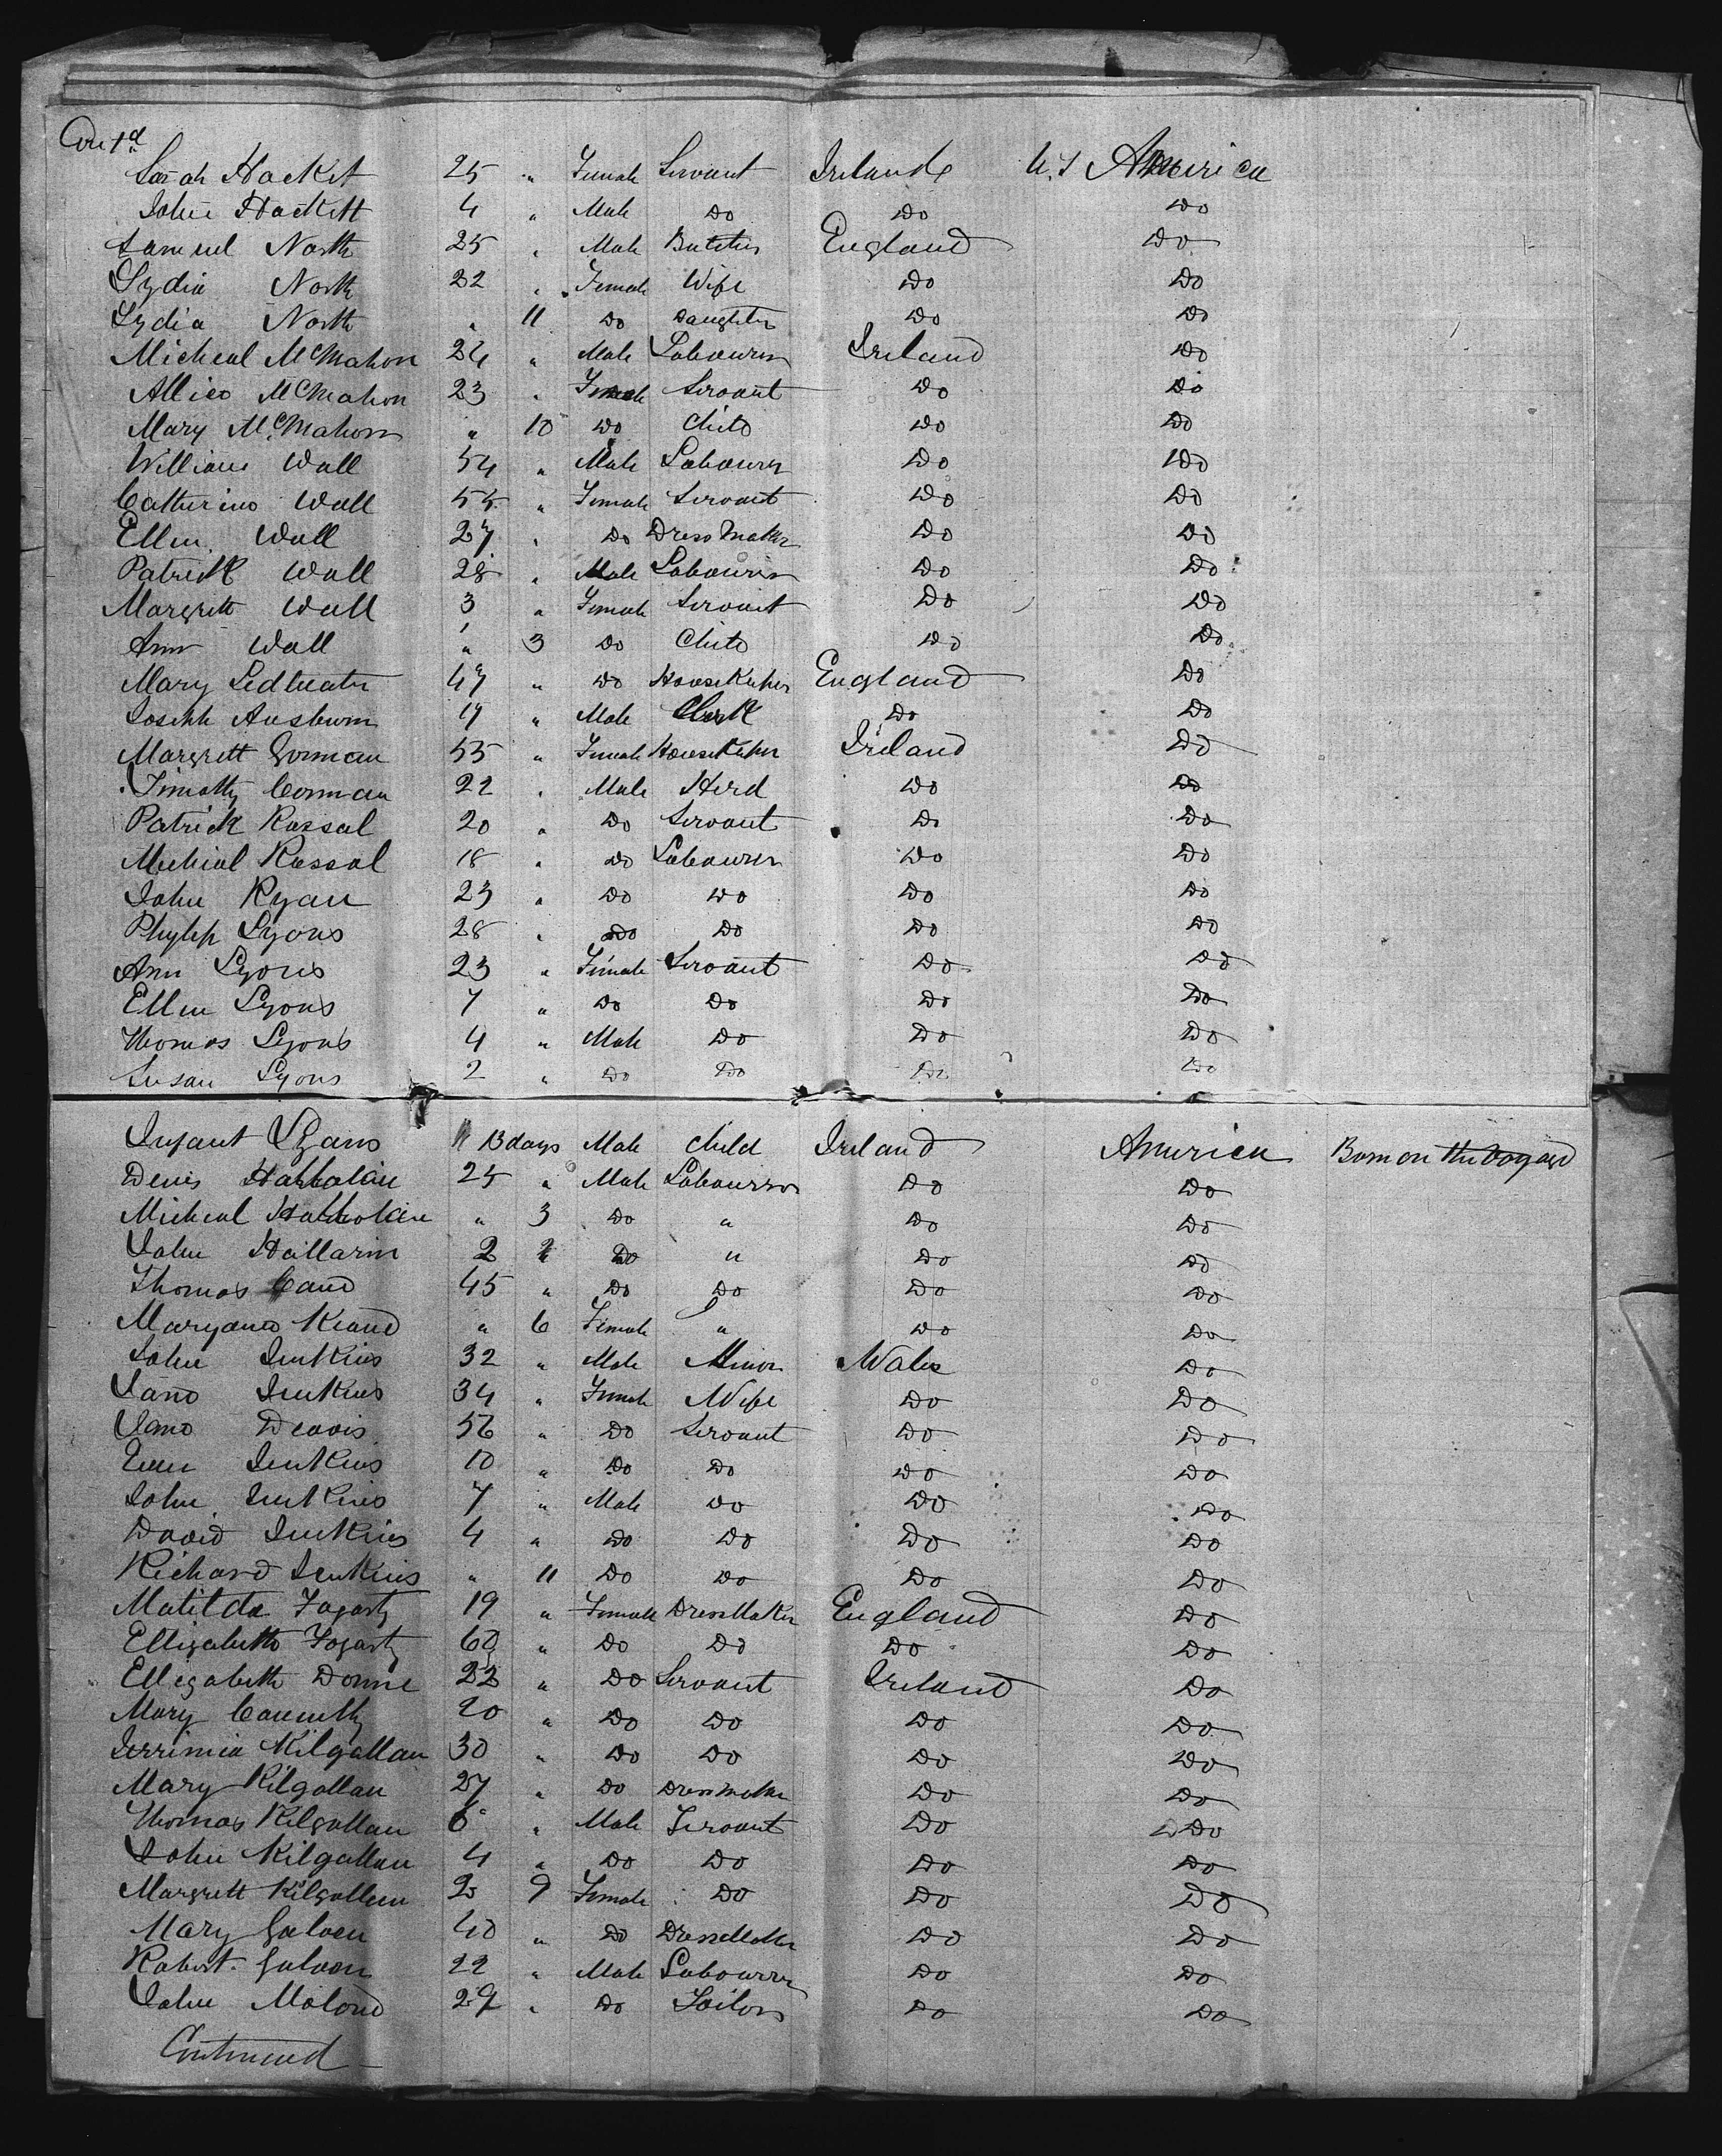 Cont'd
Sarah Hacket 25 " Female Servant Ireland U.S America
John Hackett 4 " Male Do Do Do
Samuel North 25 " Male Butcher England Do
Lydia North 22 " Female Wife Do Do
Lydia North " 11 Do Daughter Do Do
Micheal McMahon 24 " Male Labourer Ireland Do
Allice McMahon 23 " Female Servant Do Do
Mary McMahon " 10 Do Child Do Do
William Wall 54 " Male Labourer Do Do
Catherine Wall 55 " Female Servant Do Do
Ellen Wall 27 " Do Dress Maker Do Do
Patrick Wall 28 " Male Labourer Do Do
Margrett Wall 3 " Female Servant Do Do
Ann Wall " 3 Do Child Do Do
Mary 47 " Do HouseKeeper England Do
Joseph 19 " Male Clerk Do Do
Margrett Gorman 55 " Female HouseKeeper Ireland Do
Timothy Gorman 22 " Male Herd Do Do
Patrick Russal 20 " Do Servant Do Do
Micheal Russal 18 " Do Labourer Do Do
John Ryan 23 " Do Do Do Do
Phylip Lyons 28 " Do Do Do Do
Ann Lyons 23 " Female Servant Do Do
Ellen Lyons 7 " Do Do Do Do
Thomas Lyons 4 " Male Do Do Do
Susan Lyons 2 " Do Do Do Do
Infant Lyons " 13 days Male Child Ireland America Born on the Voyage
Denis 25 " Male Labourer Do Do
Micheal " 3 Do " Do Do
John Hallarin 2 Do " Do Do
Thomas 45 " Do Do Do Do
Maryann " 6 Female " Do Do
John Jenkins 32 " Male Minor Wales Do
Jane Jenkins 34 " Female Wife Do Do
Jane Deavis 56 " Do Servant Do Do
Jenkins 10 " Do Do Do Do
John Jenkins 7 " Male Do Do Do
David Jenkins 4 " Do Do Do Do
Richard Jenkins " 11 Do Do Do Do
Matilda Fogarty 19 " Female DressMaker England Do
Ellizabeth Fogarty 60 " Do Do Do Do
Ellizabeth 22 " Do Servant Ireland Do
Mary 20 " Do Do Do Do
Jerrimia Kilgallan 30 " Do Do Do Do
Mary Kilgallan 27 " Do Dressmaker Do Do
Thomas Kilgallan 6 " Male Servant Do Do
John Kilgallan 4 " Do Do Do Do
Margrett Kilgallen 2 9 Female Do Do Do
Mary Galven 40 " Do DressMaker Do Do
Robert Galven 22 " Male Labourer Do Do
John Malone 29 " Do Tailor Do Do
Continued